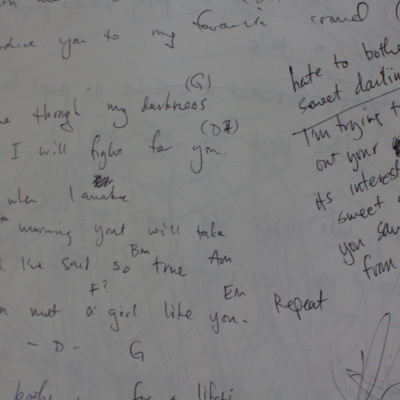 you to my favourite crowd
(G)
through my darkness
(D7)
I will fight for you.
when I awake
morning your will take
Bm Am
I've said so true
F? Em
met a girl like you. Repeat
- D - G
for a
hate to bothe
sweet darlin
I'm trying t
out your
its interest
sweet
you sav
from